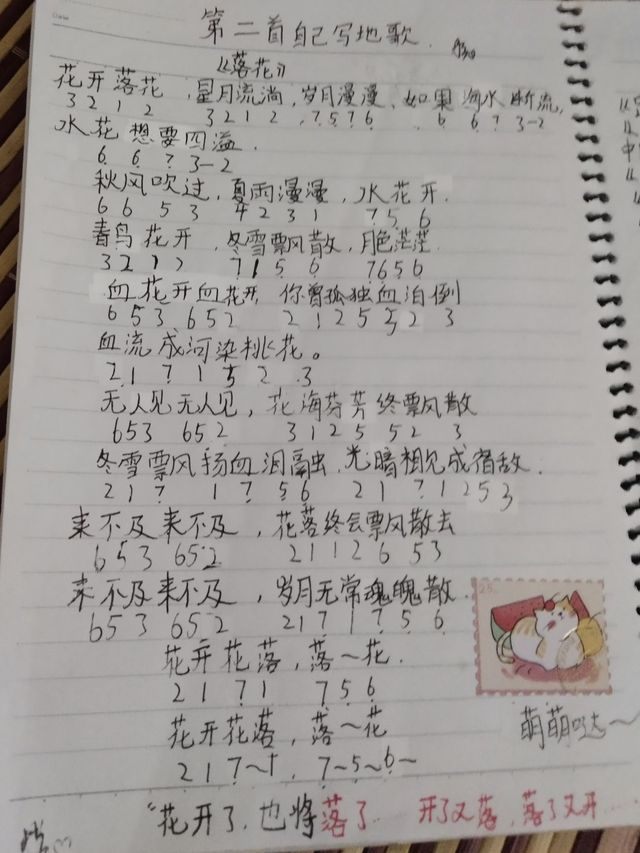 第二首自己写地歌.
《落花》
花开落花,星月流淌,岁月漫漫,如果海水断流,
3 2 1 2 3 2 1 2 , 7 5 7 6 6 6 7 3-2
水花想要四溢.
6 6 7 3-2
秋风吹过,夏雨漫漫,水花开.
6 6 5 3 4 2 3 1 7 5 6
青鸟花开,冬雪飘散,月色茫茫.
3 2 1 2 7 1 5 6 7 6 5 6
血花开血花开,你曾孤独血泊倒
6 5 3 6 5 2 2 1 2 5 5 2 3
血流成河染桃花。
2 1 7 1 5 2 3
无人见无人见,花海芬芳终票风散
6 5 3 6 5 2 3 1 2 5 5 2 3
冬雪票风扬血泪融虫,光暗相见成宿敌.
2 1 7 1 7 5 6 2 1 7 1 2 5 3
来不及来不及,花落终会票风散去
6 5 3 6 5 2 2 1 1 2 6 5 3
来不及来不及,岁月无常魂魄散.
6 5 3 6 5 2 2 1 7 1 7 5 6
花开花落,落~花.
2 1 7 1 7 5 6
花开花落,落~花
2 1 7~1 . 7~5~6~
萌萌哒~
"花开了.也将落了... 开了又落,落了又开...